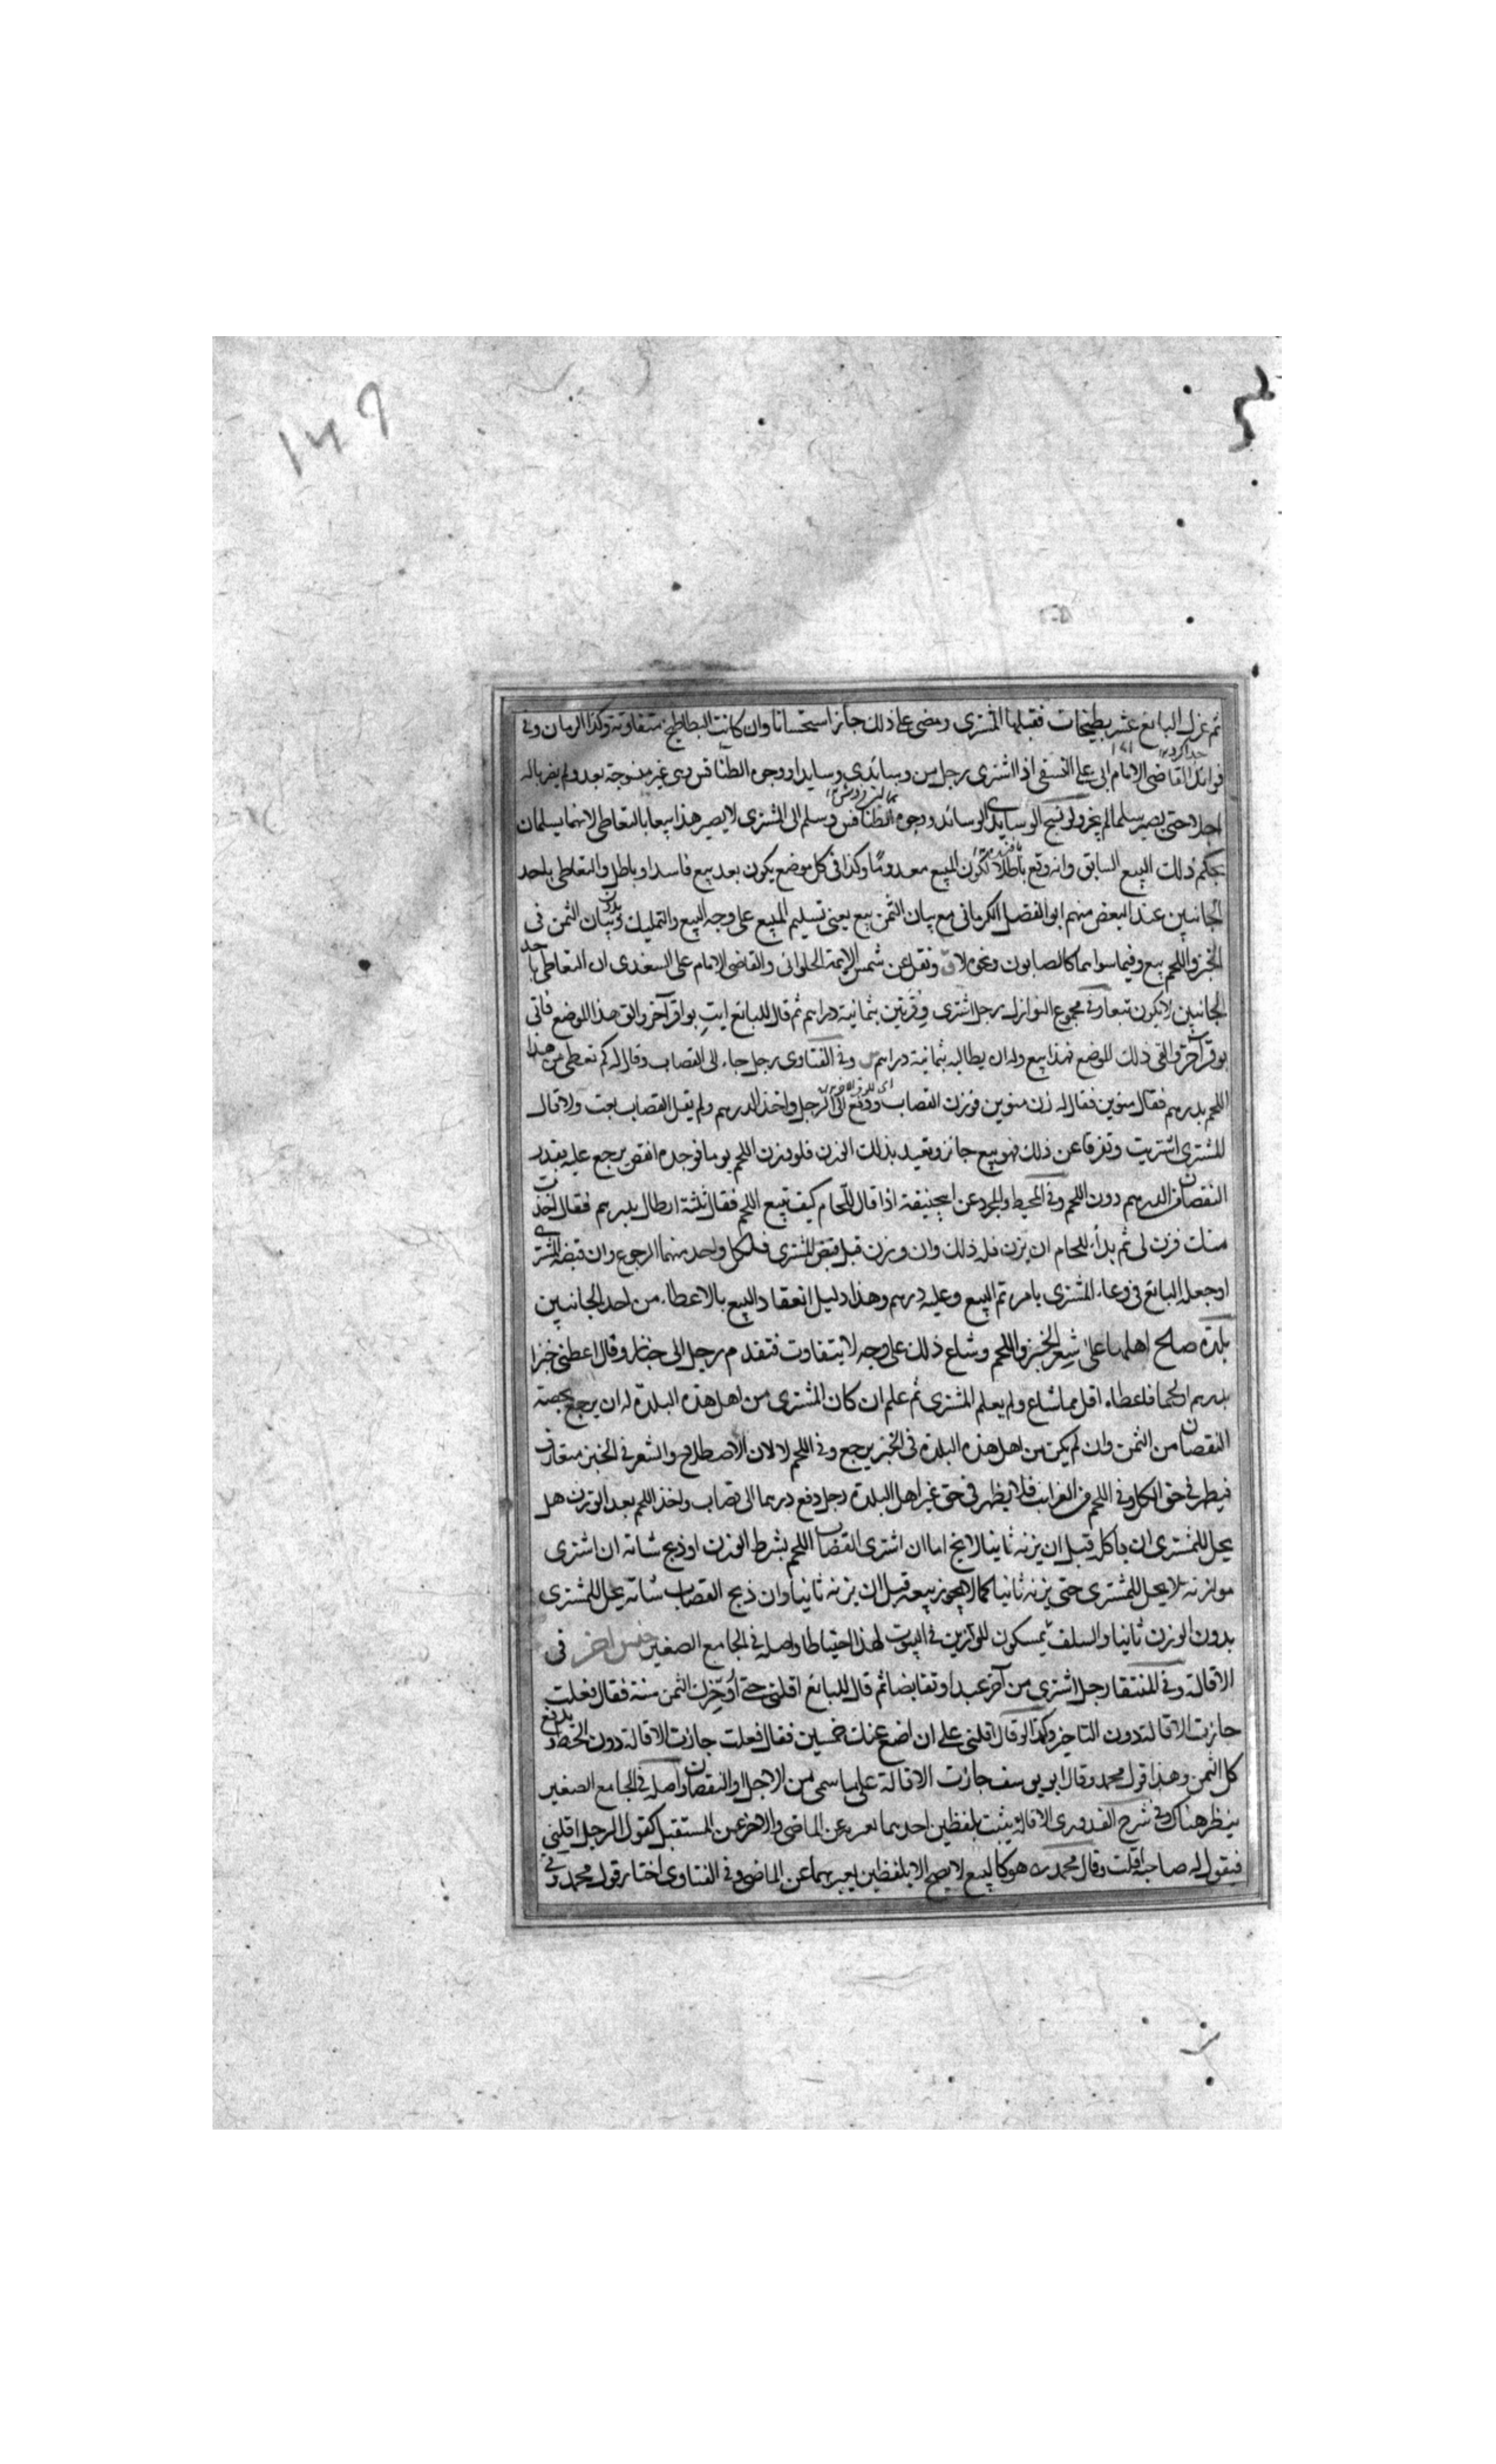 ثم عزل البائع عشر بطيخات فقبلها المشتري ومضى على ذلك جاز استحسانا وان كانت البطاطيخ متفاوتة وكذا الرمان وفي
فوائد القاضي الامام ابي علي النسفي اذا اشترى رجل من وسائدي وسايد او وجوه الطنافس وهي غير منسوجة بعد ولم يضربا له
اجلا حتى يصير سلما لم يجز ولو نسج الوسايدي الوسائد ووجوه الطنافس وسلم الى المشتري لا يصير هذا بيعا بالتعاطي لانهما يسلمان
بحكم ذلك البيع السابق وانه وقع باطلا لكون المبيع معدوما وكذا في كل موضع يكون بعد بيع فاسد او باطل والتعاطي باحد
الجانبين عند البعض منهم ابو الفضل الكرماني مع بيان الثمن بيع يعني تسليم المبيع على وجه البيع والتمليك وبدون بيان الثمن في
الخبز واللحم بيع وفيما سواهما كالصابون ونحوه لا ونقل عن شمس الايمة الحلواني والقاضي الامام علي السغدي ان التعاطي باحد
الجانبين لا يكون بيعا وفي مجموع النوازل رجل اشترى وقرتين بثمانية دراهم ثم قال للبائع ايت بوقر آخر والق هذا الموضع فاتى
بوقر آخر والقى ذلك الموضع فهذا بيع وله ان يطالبه بثمانية دراهم وفي الفتاوى رجل جاء الى القصاب وقال له كم تعطي من هذا
اللحم بدرهم فقال منوين فقال له زن منوين فوزن القصاب ودفع الى الرجل واخذ الدرهم ولم يقل القصاب بعت ولا قال
المشتري اشتريت وتفرقا عن ذلك فهو بيع جائز ويعيد بذلك الوزن فلو وزن اللحم يوما فوجده انقص يرجع عليه بقدر
النقصان من الدرهم دون اللحم وفي المحيط والمجرد عن ابي حنيفة اذا قال للحام كيف تبيع اللحم فقال ثلثة ارطال بدرهم فقال اخذت
منك فزن لي ثم بدأ للحام ان يزن فله ذلك وان وزن قبل قبض المشتري فلكل واحد منهما الرجوع وان قبضه المشتري
او جعل البائع في وعاء المشتري بامره تم البيع وعليه درهم وهذا دليل انعقاد البيع بالاعطاء من احد الجانبين
بلدة صالح اهلها على سعر الخبز واللحم وشاع ذلك على وجه لا يتفاوت فتقدم رجل الى خباز وقال اعطني خبزا
بدرهم او لحما فاعطاه اقل مما شاع ولم يعلم المشتري ثم علم ان كان المشتري من اهل هذه البلدة له ان يرجع بحصة
النقصان من الثمن وان لم يكن من اهل هذه البلدة في الخبز يرجع وفي اللحم لا لان الاصطلاح والشعر في الخبز متعارف
فيظهر في حق الكل وفي اللحم من الغرائب فلا يظهر في حق غير اهل البلدة رجل دفع درهما الى قصاب واخذ اللحم بعد الوزن هل
يحل للمشتري ان ياكله قبل ان يزنه ثانيا لا يخ اما ان اشترى القصاب اللحم بشرط الوزن او ذبح شاته ان اشترى
موازنة لا يحل للمشتري حتى يزنه ثانيا كما لا يجوز بيعه قبل ان يزنه ثانيا وان ذبح القصاب شاته يحل للمشتري
بدون الوزن ثانيا والسلف يمسكون الموازين في البيوت لهذا احتياطا واصله في الجامع الصغير جنس اخر في
الاقالة وفي المنتقا رجل اشترى من آخر عبدا وتقابضا ثم قال للبائع اقلني حتى أؤخرك الثمن سنة فقال فعلت
جازت الاقالة دون التاخير وكذا لو قال اقلني على ان اضع عنك خمسين فقال فعلت جازت الاقالة دون الحط ويدفع
كل الثمن وهذا قول محمد وقال ابو يوسف جازت الاقالة على ما سمى من الاجل والنقصان واصله في الجامع الصغير
ينظر هناك وفي شرح القدوري الاقالة يثبت بلفظين احدهما يعبر به عن الماضي والاخر عن المستقبل كقول الرجل اقلني
فيقول له صاحبه اقلت وقال محمد هو كالبيع لا يصح الا بلفظين يعبر بهما عن الماضي وفي الفتاوى اختار قول محمد وفي